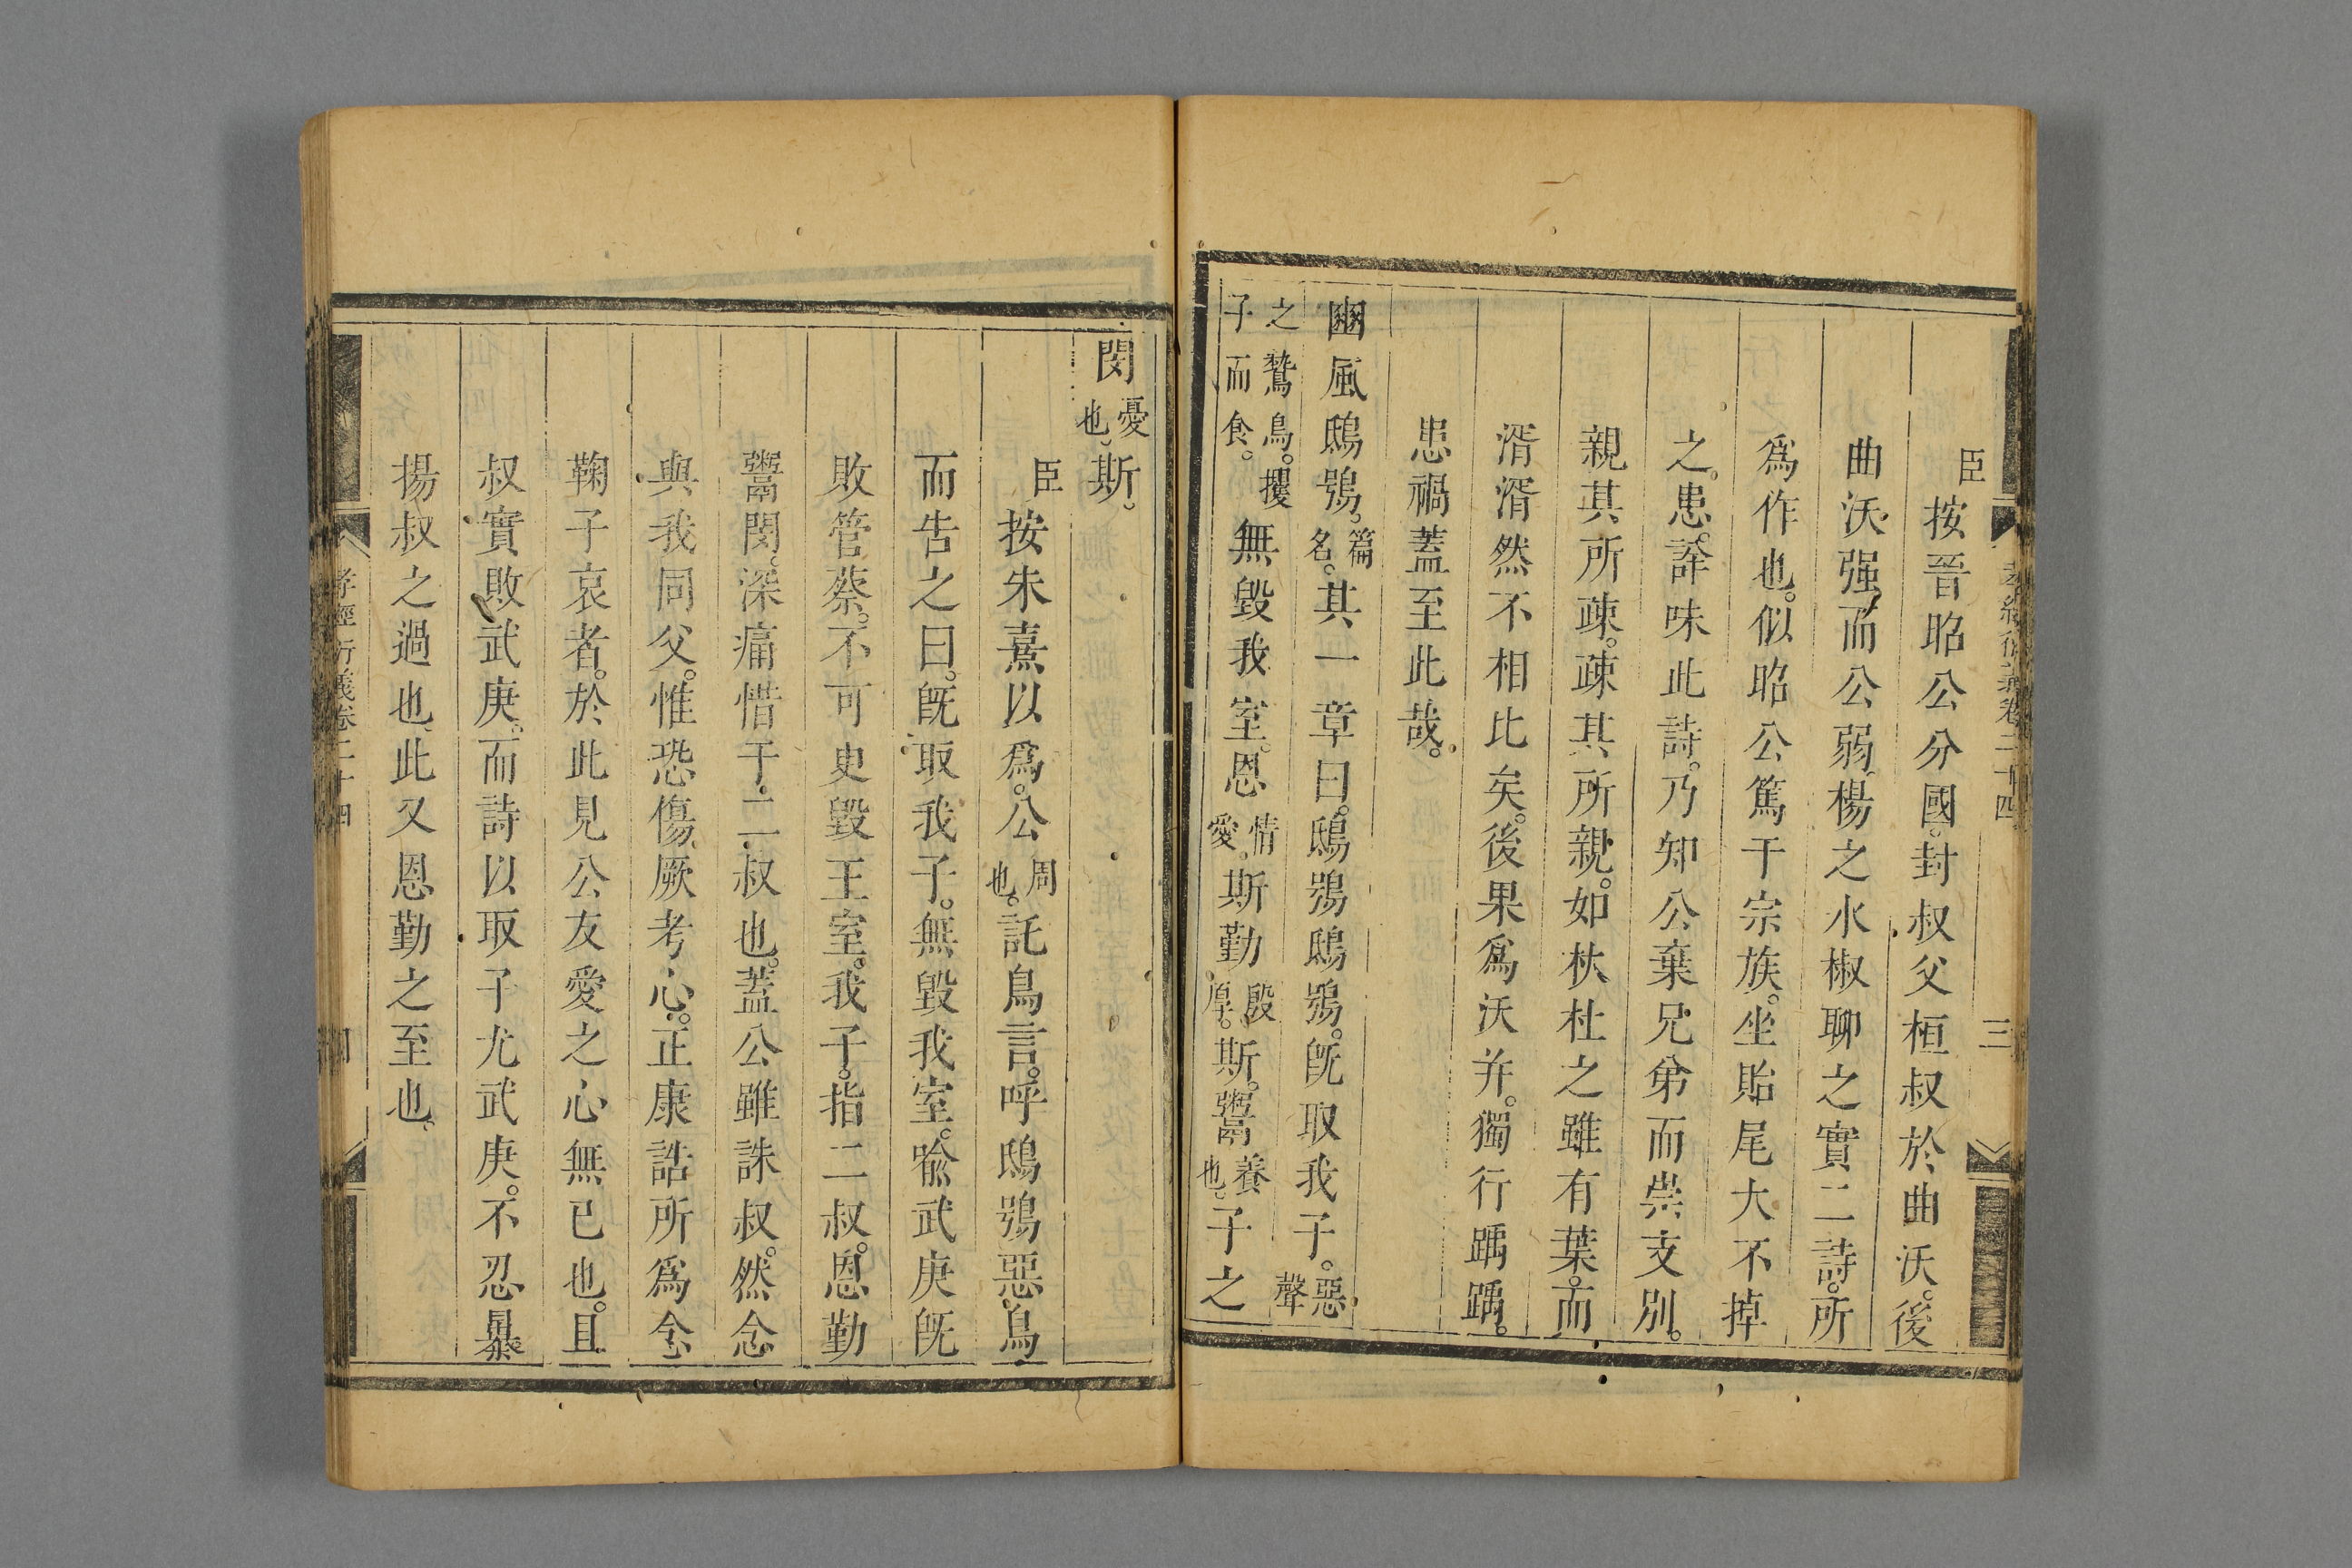 孝經衍義卷二十四
三
臣按晉昭公分國。封叔父桓叔於曲沃。後
曲沃强。而公弱。楊之水椒聊之實二詩。所
爲作也。似昭公篤于宗族。坐貽尾大不掉
之患。詳味此詩。乃知公棄兄弟而崇支别。
親其所疎。疎其所親。如杕杜之雖有葉。而
湑湑然不相比矣。後果爲沃并。獨行踽踽。
患禍蓋至此哉。
豳風鴟鴞。篇名。其一章曰。鴟鴞鴟鴞。旣取我子。惡聲
之鷙鳥。攫子而食。無毀我室。恩情愛。斯勤殷厚。斯。鬻養也。子之
閔憂也。斯。
臣按朱熹以爲。公周也。託鳥言。呼鴟鴞惡鳥
而告之曰。旣取我子。無毀我室。喩武庚旣
敗管蔡。不可更毀王室。我子。指二叔。恩勤
鬻閔。深痛惜于二叔也。蓋公雖誅叔。然念
與我同父。惟恐傷厥考心。正康誥所爲念
鞠子哀者。於此見公友愛之心無已也。且
叔實敗武庚。而詩以取子尤武庚。不忍暴
揚叔之過也。此又恩勤之至也。
孝經衍義卷二十四
四